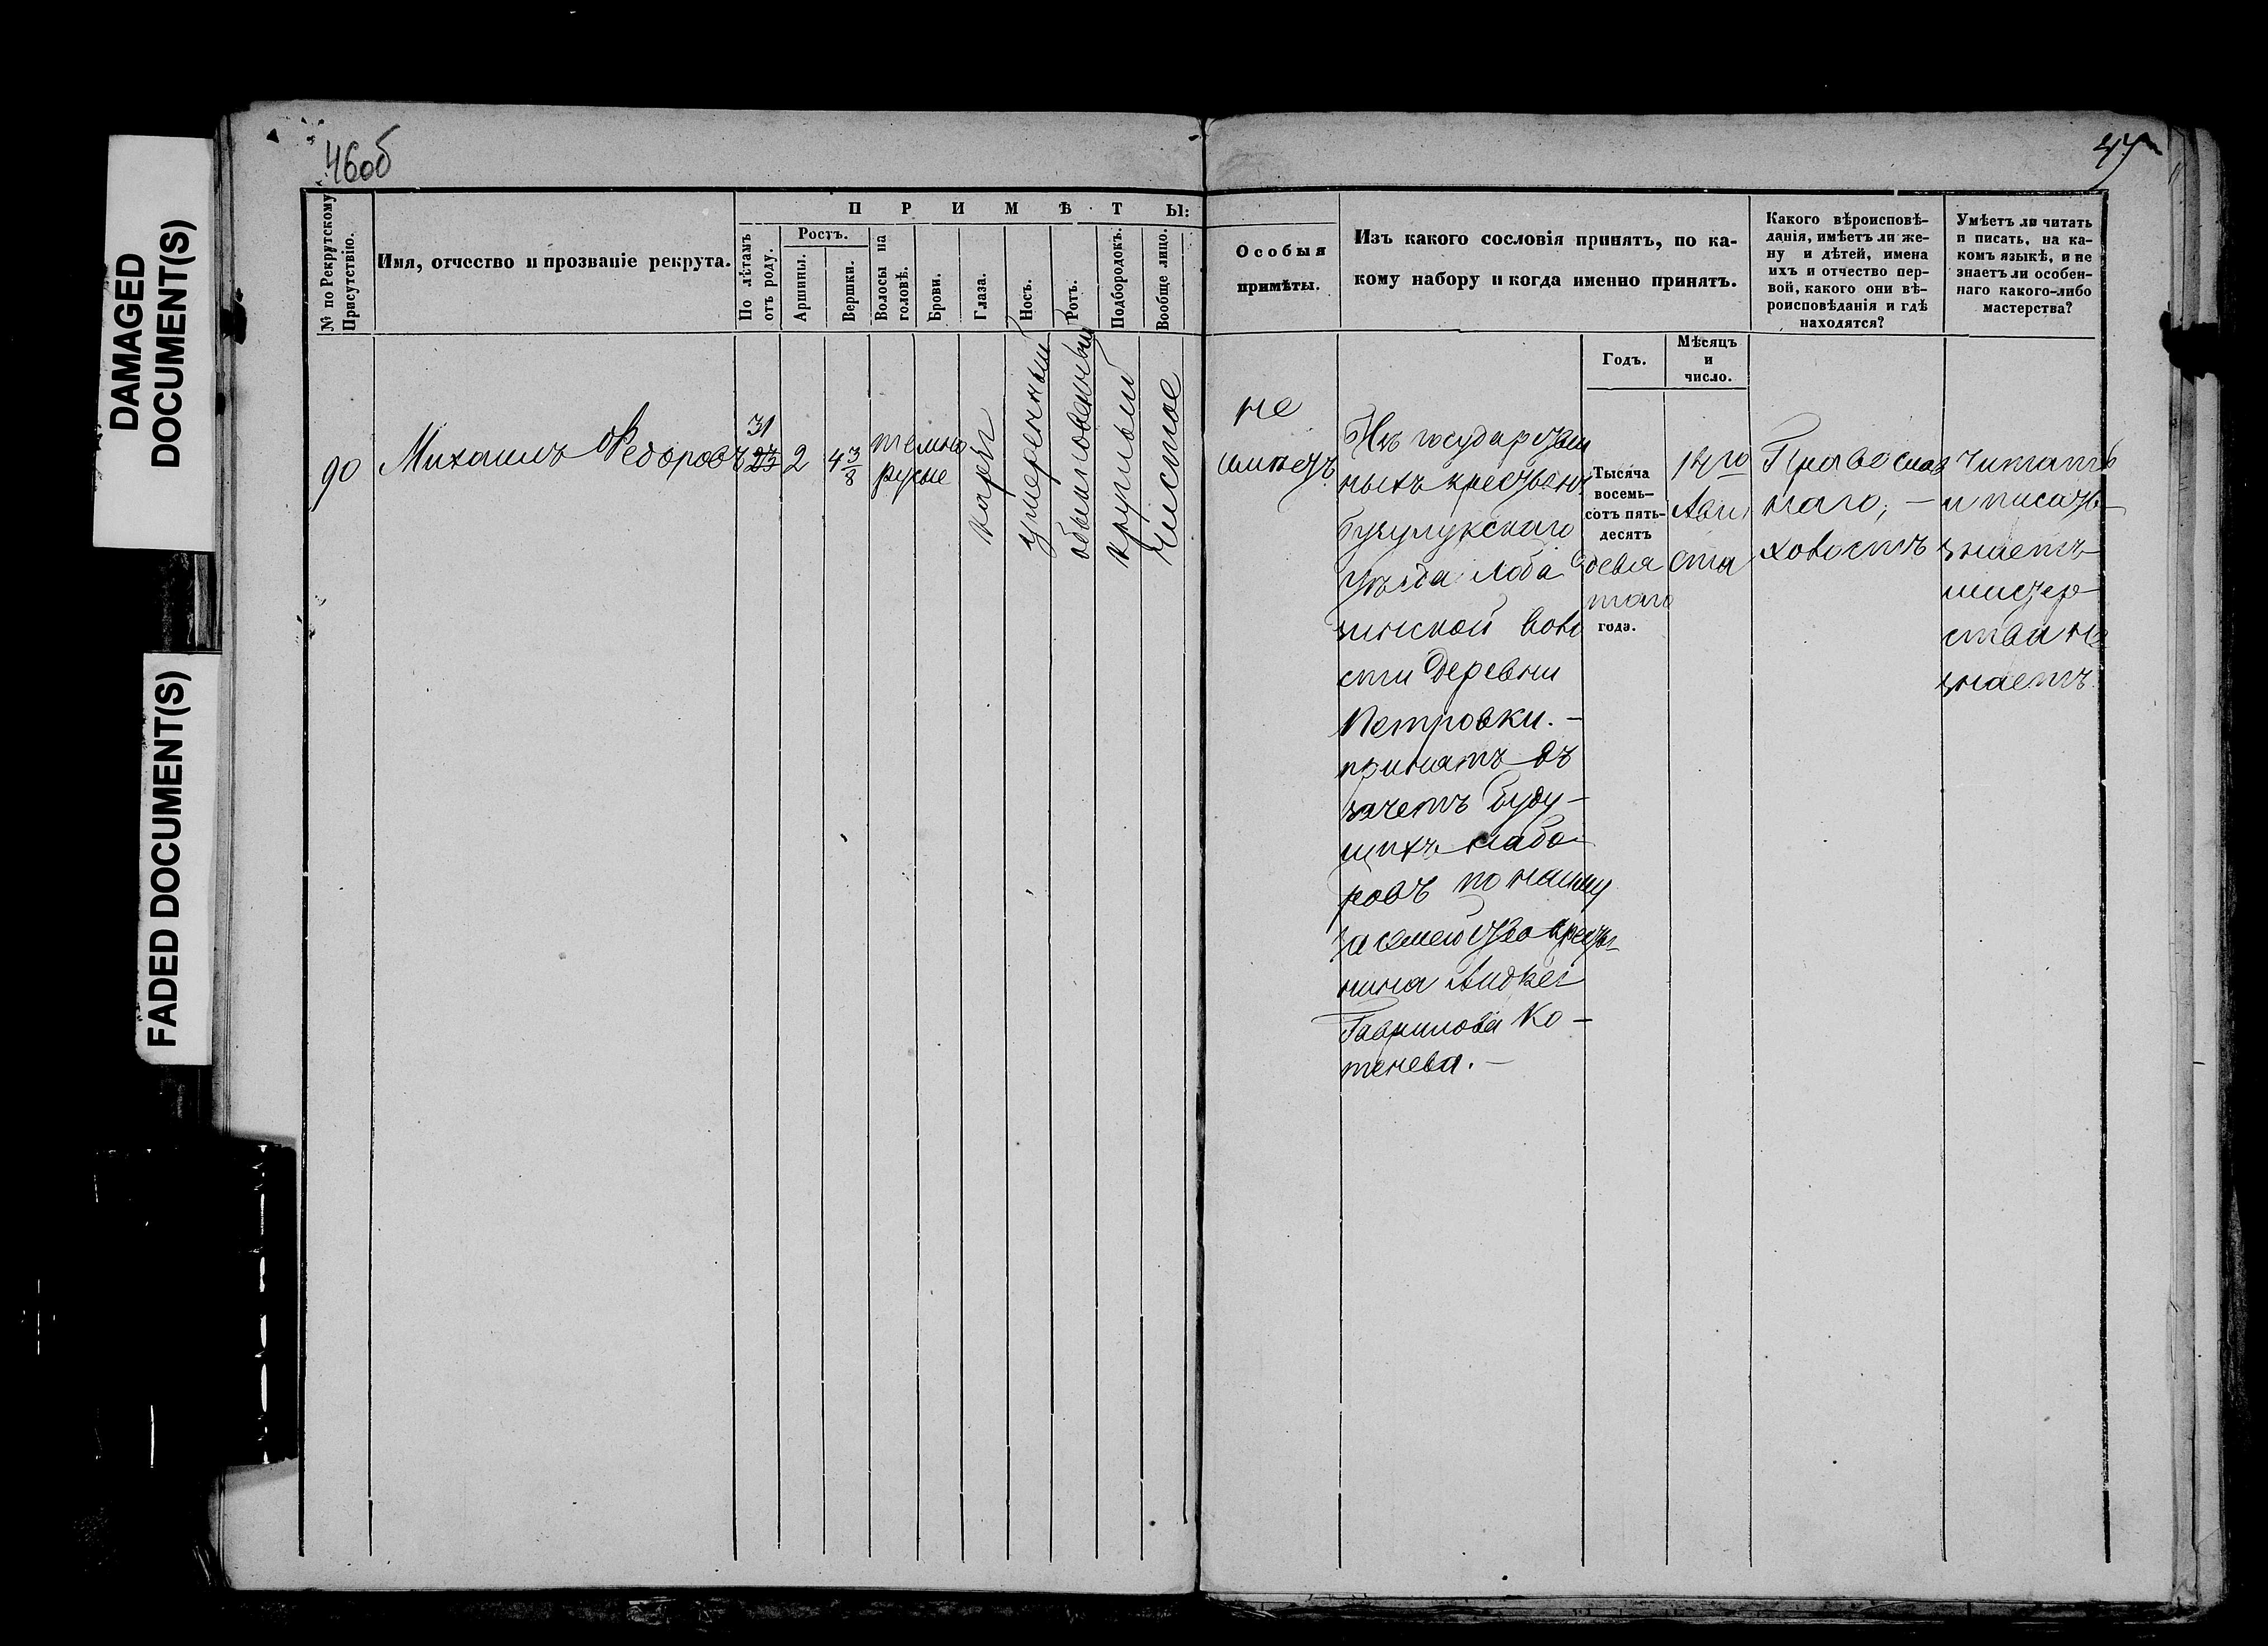 DAMAGED
DOCUMENT(S)
FADED DOCUMENT(S)
46об
47
№ по Рекрутскому
Присутствію.
Имя, отчество и прозваніе рекрута.
ПРИМѢТЫ:
По лѣтамъ
отъ роду.
Ростъ.
Аршины.
Вершки.
Волосы на
головѣ.
Брови.
Глаза.
Носъ.
Ротъ.
Подбородокъ.
Вообще лицо.
Особыя
примѣты.
Изъ какого сословія принятъ, по ка-
кому набору и когда именно принятъ.
Годъ.
Мѣсяцъ
и
число.
Какого вѣроисповѣ-
данія, имѣетъ ли же-
ну и дѣтей, имена
ихъ и отчество пер-
вой, какого они вѣ-
роисповѣданія и гдѣ
находятся?
Умѣетъ ли читать
и писать, на ка-
комъ языкѣ, и не
знаетъ ли особен-
наго какого-либо
мастерства?
90
Михаилъ Ѳедоровъ
31
23
2
4 3/8
темно
русые
каріе
умеренный
обыкновенный
круглый
чистое
не
имеетъ
Изъ государствен
ныхъ крестьянъ
бузулукскаго
уѣзда Лоба
зинской воло
сти деревни
Петровки. –
принятъ въ
зачетъ буду –
щихъ набо
ровъ по найму
за семейство крестья
нина Андрея
Гаврилова Ко –
тенева. –
Тысяча
восемь-
сотъ пять-
десятъ
девя
таго
года.
14го
Авгу
ста
Православ
наго, –
холостъ
читать
и писать
знаетъ
мастер
ства не
знаетъ